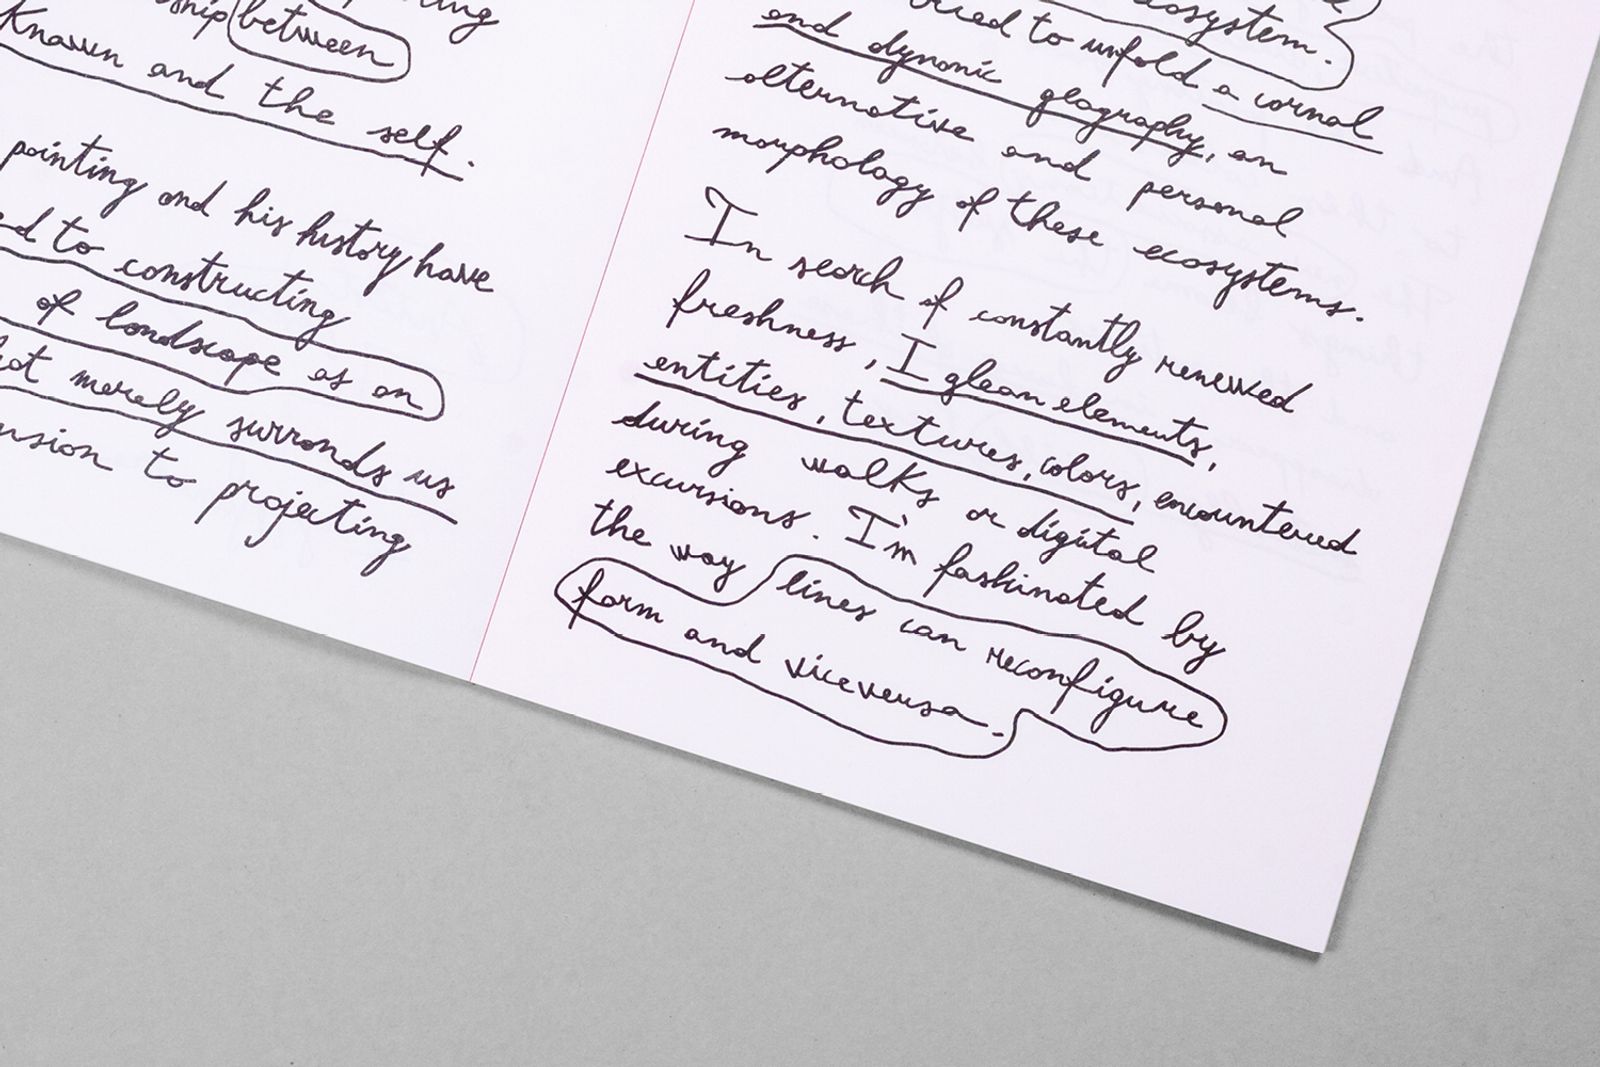 between
Known and the self.
pointing and his history have
to constructing
of londscope as on
merely surronds us
to projecting
ecosystem.
to unfold a cornal
and dynomic geography, an
olternotive and personal
morphology of these ecosystems.
In search of constantly renewed
freshness, I glean elements,
entities, textures, colors, encountered
during walks or digital
excursions. I'm fashinated by
the way lines can reconfigure
form and viceversa.